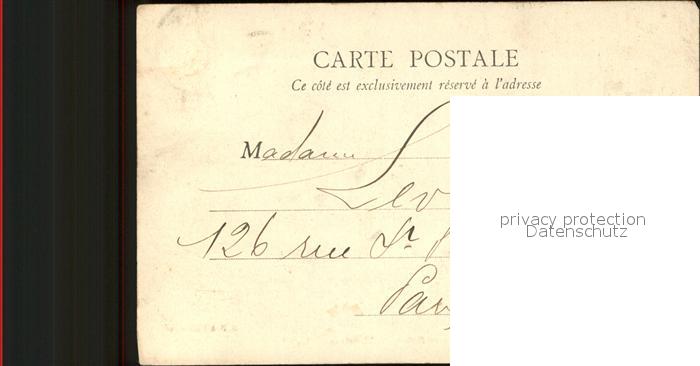 CARTE POSTALE
Ce côté est exclusivement réservé à l'adresse
Madame
126 rue St
privacy protection
Datenschutz